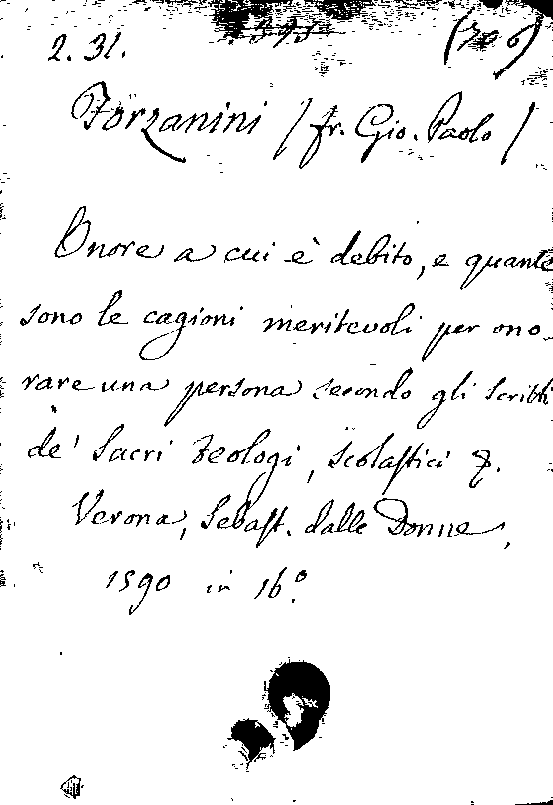 2. 31.
(706)
Forzanini / fr. Gio. Paolo /
Onore a cui è debito, e quante
sono le cagioni meritevoli per ono-
rare una persona secondo gli scritti
de' Sacri Teologi, Scolastici &.
Verona, Sebast. dalle Donne,
1590 in 16°.